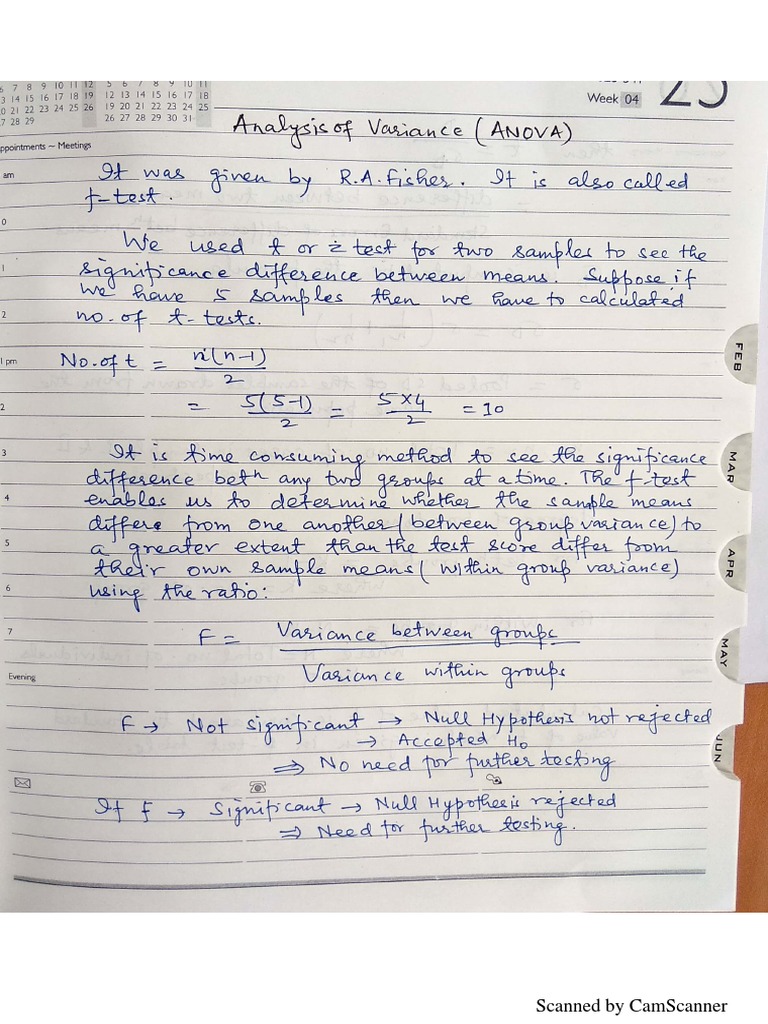 6 7 8 9 10 11 12 5 6 7 8 9 10 11
3 14 15 16 17 18 19 12 13 14 15 16 17 18
0 21 22 23 24 25 26 19 20 21 22 23 24 25
7 28 29 26 27 28 29 30 31
Week 04
Analysis of Variance (ANOVA)
Appointments ~ Meetings
am
It was given by R.A. Fisher. It is also called
f-test.
0
We used t or z test for two samples to see the
1
significance difference between means. Suppose if
we have 5 samples then we have to calculated
2
no. of t-tests.
1 pm
No. of t = n(n-1)
2
2
= 5(5-1) = 5×4 = 10
2 2
3
It is time consuming method to see the significance
difference bethn any two groups at a time. The f-test
4
enables us to determine whether the sample means
differe from one another (between group variance) to
5
a greater extent than the test score differ from
their own sample means (within group variance)
6
using the ratio:
7
F = Variance between groups
Evening
Variance within groups
F → Not significant → Null Hypothesis not rejected
→ Accepted H0
⇒ No need for further testing
If f → Significant → Null Hypothesis rejected
⇒ Need for further testing.
FEB
MAR
APR
MAY
JUN
Scanned by CamScanner